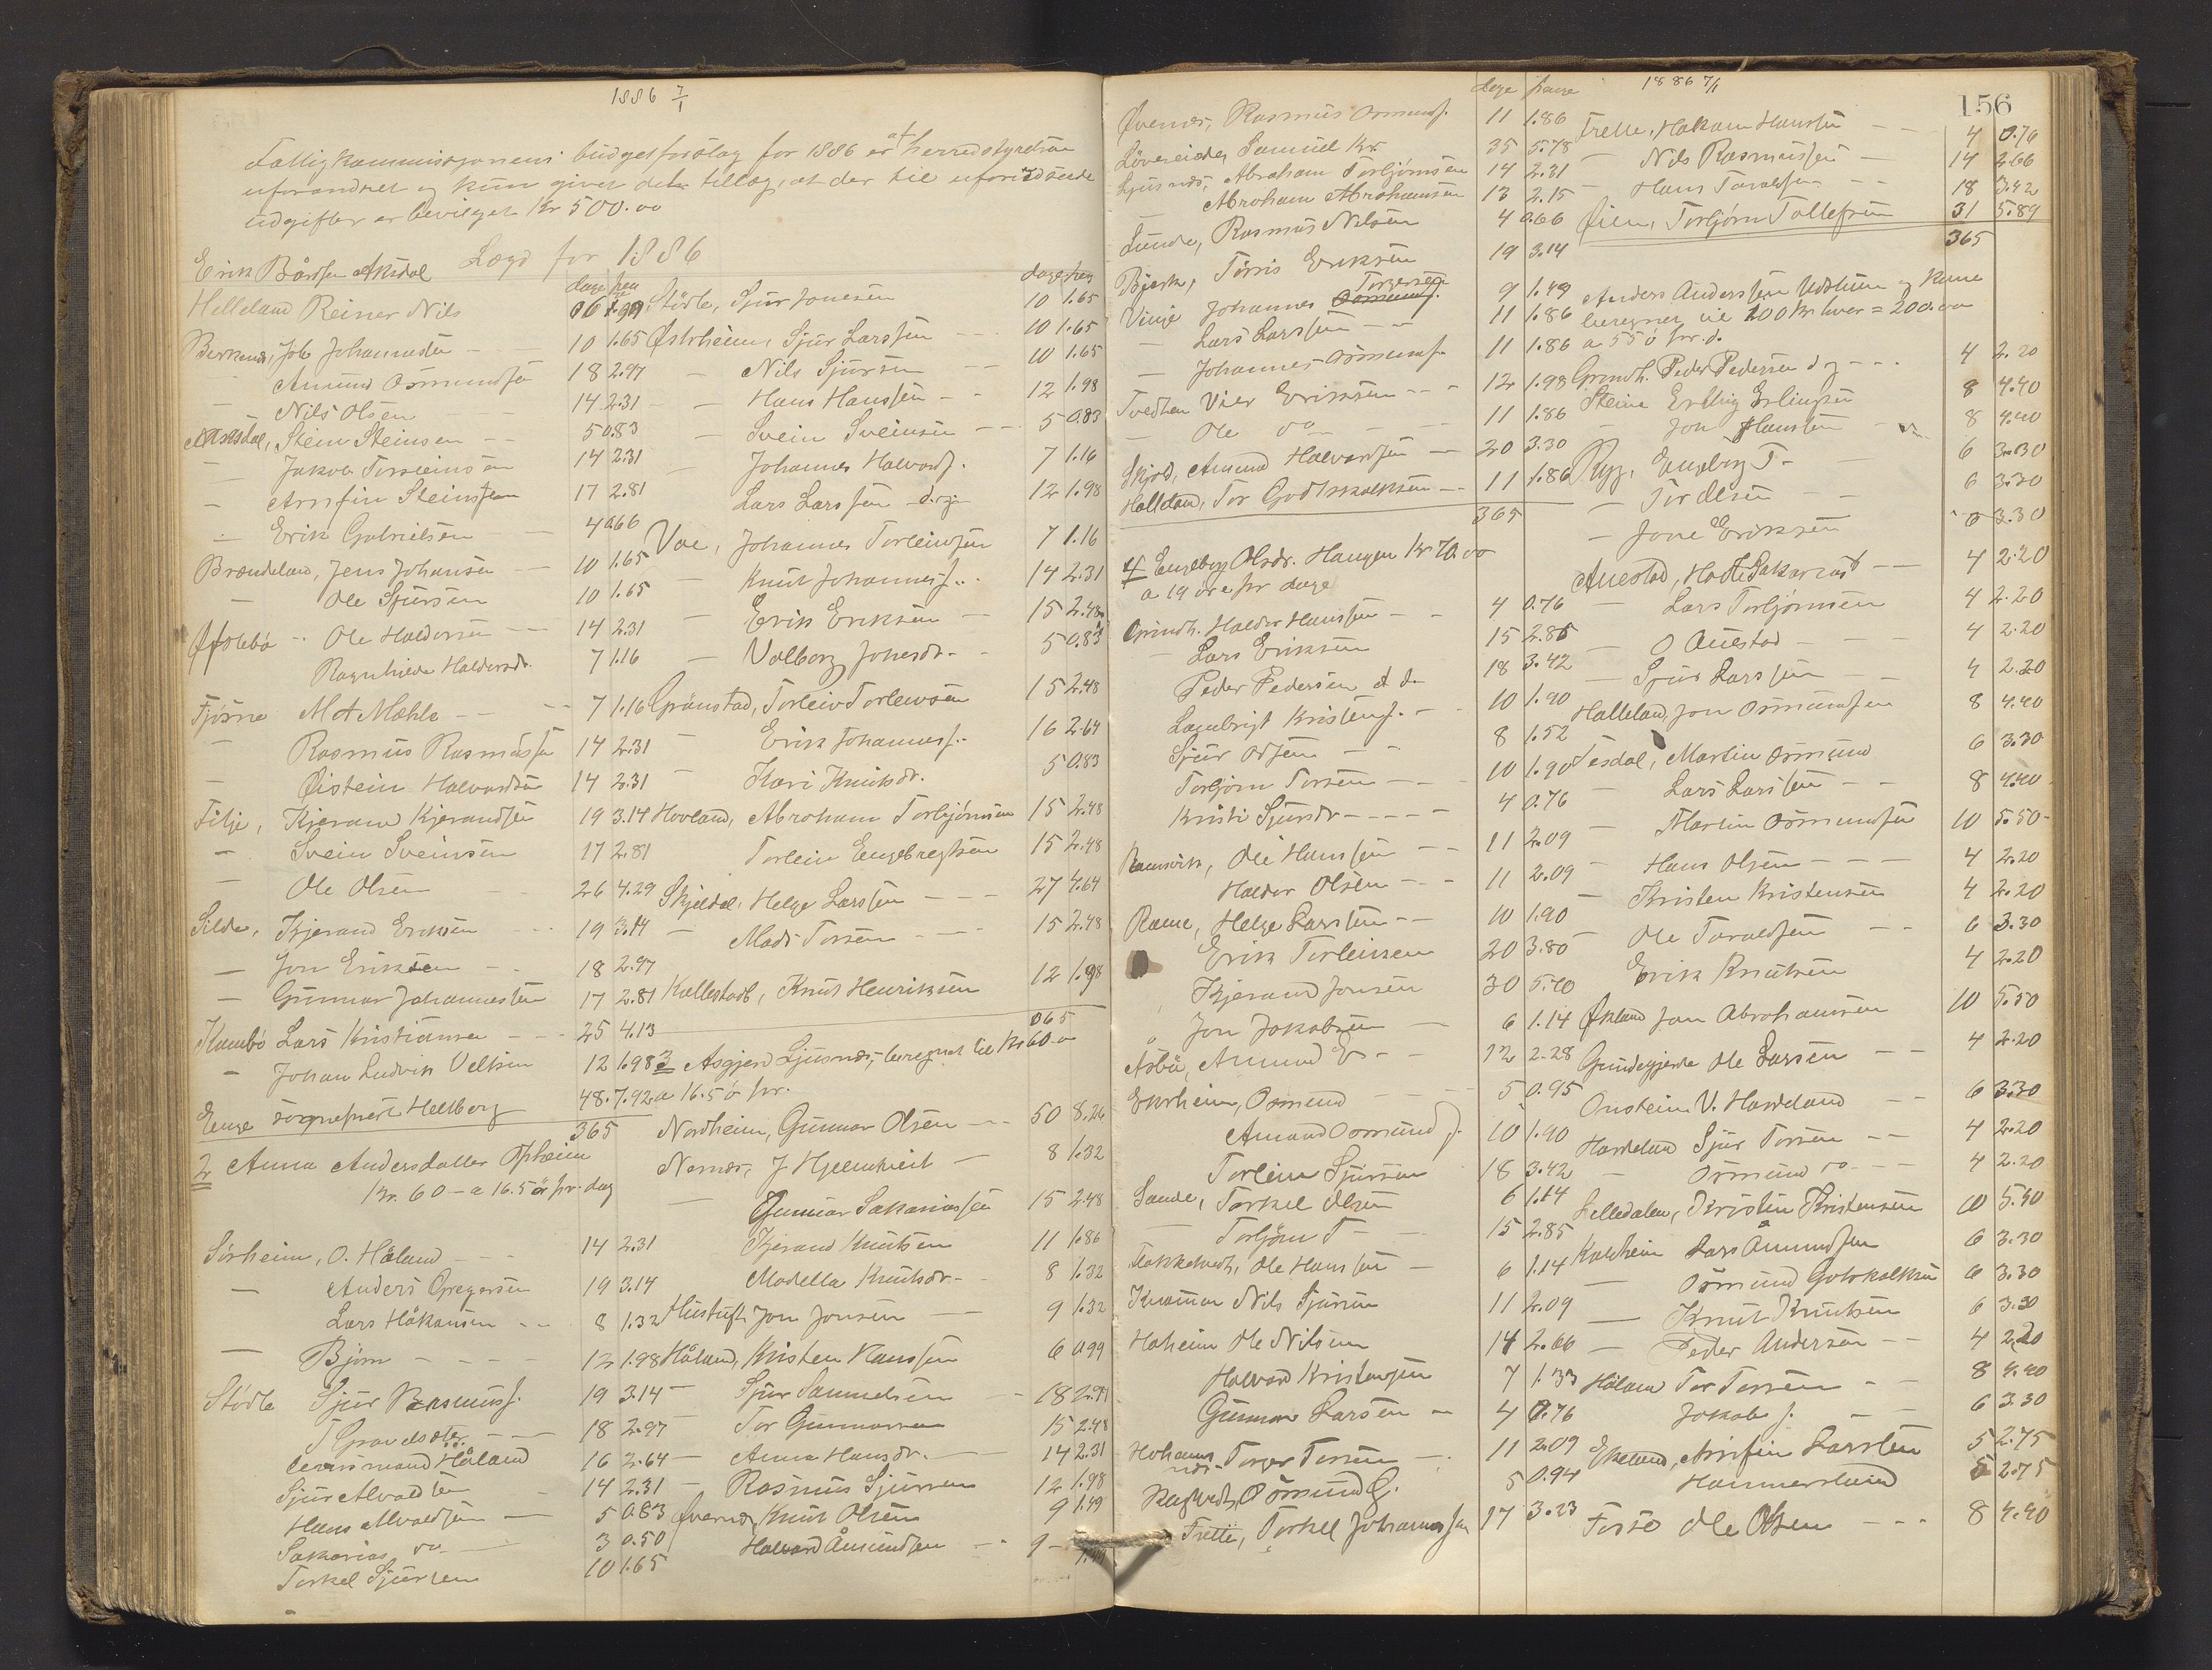 1886 7/1
Fattigkommissjonens budgetforslag for 1886 er af herredstyrelsen
uforandret og kun givet det tillæg, at der til uforudsende
udgifter er bevilget Kr 500.00
Lægd for 1886
Erik Bårdsen Aksdal
dage
Helleland Reiner Nils 6
Berkenes, Job Johannesen - 10 1.65
- Amund Osmundsen 18 2.97
- Nils Olsen 14 2.31
Stein Steinsen - 5 0.83
- Jakob Torsteinsen 14 2.31
- Arnfin Steinsen 17 2.81
- Erik Gabrielsen - 4 0.66
Brændeland, Jens Johansen - 10 1.65
- Ole Sjursen 10 1.65
Ole Haldorsen 14 2.31
Ragnhilde Haldorsdr. 7 1.16
Fjösne M A Mæhle - - 7 1.16
- Rasmus Rasmussen 14 2.31
- Öistein Halvardsen 14 2.31
Filje, Kjerand Kjerandsen 19 3.14
- Svein Sveinsen 17 2.81
- Ole Olsen 26 4.29
Silde, Kjerand Eriksen 19 3.14
- Jon Eriksen - 18 2.97
- Gunnar Johannesen 17 2.81
Lars Kristiansen - 25 4.13
- Johan Ludvik Veltsin 12 1.98
Enge sogneprest Hellberg 48. 7.92
365
2 Anna Andersdatter Opheim
Kr. 60 - a 16.5 ör pr. dag
Sörheim, O. Håland - - 14 2.31
- Anders Gregersen 19 3.14
Lars Håkonsen - - 8 1.32
- Björn - - - - 12 1.98
Stödle Sjur Rasmuss. 19 3.14
18 2.97
Lensmand Håland 16 2.64
Sjur Alvaldsen 14 2.31
Hans Alvaldsen - 5 0.83
Sakarias do - 3 0.50
Torkel Sjursen 10 1.65
dage
Stödle, Sjur Jonesen 10 1.65
Östrheim, Sjur Larssen - 10 1.65
- Nils Sjursen - 10 1.65
- Hans Hanssen - - 12 1.98
- Svein Sveinsen - - 5 0.83
- Johannes Halvards. 7 1.16
Lars Larssen d.y. 12 1.98
Vae, Johannes Torleivsen 7 1.16
- Knut Johanness.. 14 2.31
- Erik Eriksen - 15 2.48
- Valborg Johnsdr. - 5 0.83
Grönstad, Torleiv Torleivsen 15 2.48
- Erik Johanness. - 16 2.64
- Kari Knutsdr. 5 0.83
Hovland, Abraham Torbjörnsen 15 2.48
Torleiv Engebregtsen 15 2.48
Skjeldal, Helge Larssen - - - 27 4.64
- Mads Torsen - - - 15 2.48
Kallestadt, Knut Henriksen 12 1.98
365
3 Asgjerd Ljusnes, beregnet til Kr 60.-
a 16.5 ö pr.
Nordheim, Gunnar Olsen - - 50 8.26
Nernes, J Hjelmkveit - 8 1.32
- Gunnar Sakariassen 15 2.48
Kjerand Knutsen 11 1.86
Madella Knutsdr. - 8 1.32
Jon Jonsen - 9 1.32
Håland, Kristen Hanssen 6 0.99
- Sjur Samuelsen - - 18 2.97
- Tor Gunnarsen 15 2.48
- Anna Hansdr. - 14 2.31
- Rasmus Sjursen 12 1.98
Knut Olsen 9 1.49
Halvard Åmundsen - - 9 - 1.49
1886 7/1
156
dage
Övernes, Rasmus Osmunds. 11 1.86
Lövereide, Samuel Kr. 35 5.78
Ljusnes, Abraham Torbjörnsen 14 2.31
- Abraham Abrahamsen 13 2.15
Lunde, Rasmus Nilsen 4 0.66
Bjerk, Törris Eriksen 19 3.14
Vinje Johannes Torgersen 9 1.49
- Lars Larssen - - 11 1.86
- Johannes Osmunds. 11 1.86
Tvedten Vier Eriksen - - - 12 1.98
- Ole do - - - 11 1.86
Skjold, Amund Halvardsen - 20 3.30
Halleland, Tor Godtskalksen - - 11 1.86
365
4 Engeborg Olsdr. Haugen Kr 70.00
a 19 öre pr dage
Grindh. Haldor Hanssen - - 4 0.76
- Lars Eriksen 15 2.85
Peder Pedersen d. e. 18 3.42
Lambrigt Kristens. - 10 1.90
Sjur Olsen - - 8 1.52
Torbjörn Torsen - - - 10 1.90
Kristi Sjursdr - - - - 4 0.76
Ramsvik, Ole Hanssen - - 11 2.09
Haldor Olsen - - 11 2.09
Rame, Helge Larssen - - 10 1.90
Erik Torleivsen 20 3.80
Kjerand Jonsen 30 5.70
Jon Jakobsen - 6 1.14
Asbö, Amund E - - 12 2.28
Ekrheim, Osmund - - 5 0.95
Amund Osmunds. 10 1.90
Torleiv Sjursen 18 3.42
Sande, Torkel Olsen 6 1.14
- Torbjörn T - - 15 2.85
Ole Hanssen - 6 1.14
Nils Sjursen 11 2.09
Ole Nilsen 14 2.66
Halvard Kristensen 7 1.33
Gunnar Larsen - 4 0.76
Torger Torsen - . 11 2.09
Osmund G. 5 0.94
Frette, Torkel Johannessen 17 3.23
Frette, Hakon Hanssen - - 4 0.76
- Nils Rasmussen - 14 2.66
- Hans Taraldsen - - 18 3.42
Öien, Torbjörn Tollefsen 31 5.89
365
Anders Anderssen Udstuen og kone
beregnes til 100 kr hver = 200.00
a 55 ö pr. d.
Grindh. Peder Pedersen d y - - - 4 2.20
Steine Erling Erlingsen 8 4.40
- Jon Hansen - 8 4.40
Ryg, Engeborg T - 6 3.30
- Tor Olsen - - 6 3.30
- Jone Eriksen - 6 3.30
Auestad, Hadle Sakarias - - 4 2.20
- Lars Torbjörnsen 4 2.20
- O Auestad - - - 4 2.20
- Sjur Larssen - - 4 2.20
Halleland, Jon Osmundsen 8 4.40
Tesdal, Martin Osmund 6 3.30
- Lars Larssen - - 8 4.40
- Martin Osmundsen 10 5.50
- Hans Olsen - - - 4 2.20
- Kristen Kristensen 4 2.20
- Ole Taraldsen - - 6 3.30
Erik Knutsen 4 2.20
Ökland Jon Abrahamsen 10 5.50
Ole Larsen - - 4 2.20
Onstein V. Hardeland - - 6 3.30
Hardeland Sjur Torsen - - 4 2.20
- Osmund do - - - 4 2.20
Lelledalen, Kristen Kristensen 10 5.50
Kaldheim Lars Åmundsen 6 3.30
- Osmund Gotskalksen 6 3.30
- Knut Knutsen 6 3.30
- Peder Andersen - - 4 2.20
Håland Tor Torsen - - 8 4.40
Jakob J. - - 6 3.30
Ekeland, Arnfin Larsen 5 2.75
Hammersland 5 2.75
Fosse Ole Olsen - - - 8 4.40